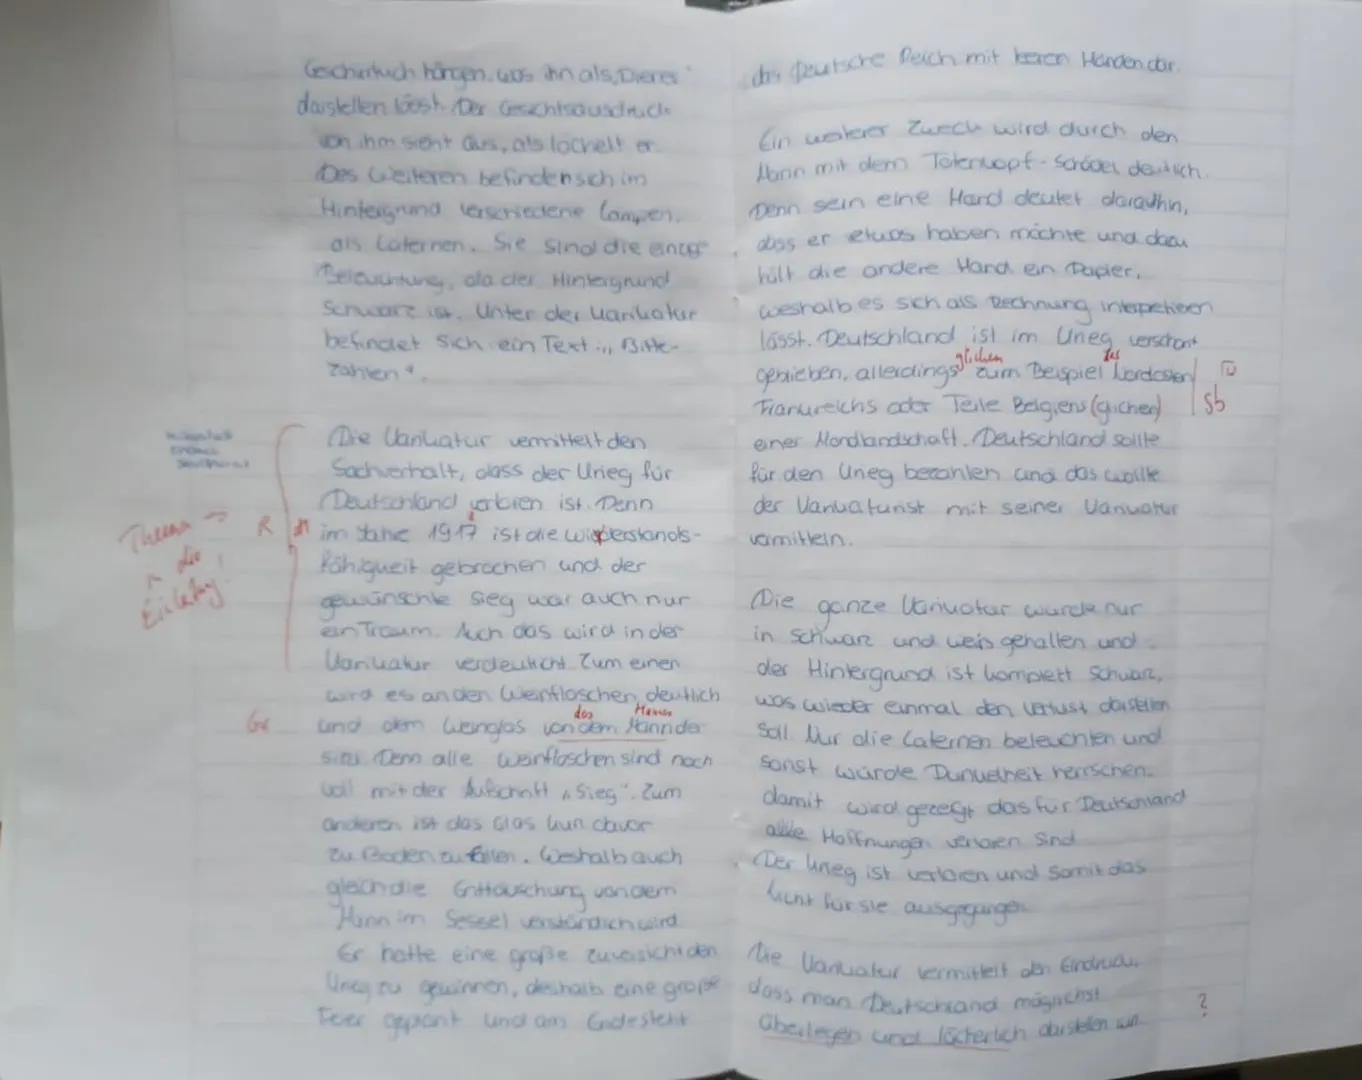 Geschirrtuch hängen, was ihn als „Diener"
darstellen lässt. Der Gesichtsausdruck
von ihm sieht aus, als lächelt er.
Des Weiteren befinden sich im
Hintergrund verschiedene Lampen,
als Laternen. Sie sind die einzige
Beleuchtung, da der Hintergrund
Schwarz ist. Unter der Karikatur
befindet sich ein Text „Bitte
zahlen".
Die Karikatur vermittelt den
Sachverhalt, dass der Krieg für
Deutschland verloren ist. Denn
Thema → R
im Jahre 1917 ist die widerstands-
die
Einleitung!
fähigkeit gebrochen und der
gewünschte Sieg war auch nur
ein Traum. Auch das wird in der
Karikatur verdeutlicht. Zum einen
wird es an den Weinflaschen deutlich
des Mannes
Gr und dem Weinglas von dem Mann der
sitzt. Denn alle Weinflaschen sind noch
voll mit der Aufschrift „Sieg". Zum
anderen ist das Glas kurz davor
zu Boden zu fallen. Weshalb auch
gleich die Enttäuschung von dem
Mann im Sessel verständlich wird.
Er hatte eine große zuversicht den
Krieg zu gewinnen, deshalb eine große
Feier geplant und am Ende steht
das Deutsche Reich mit leeren Händen dar.
Ein weiterer Zweck wird durch den
Mann mit dem Totenkopf-Schädel deutlich.
Denn sein eine Hand deutet daraufhin,
dass er etwas haben möchte und dazu
hält die andere Hand ein Papier,
weshalb es sich als Rechnung interpretieren
lässt. Deutschland ist im Krieg verschont
glichen des
geblieben, allerdings zum Beispiel Nordosten
Frankreichs oder Teile Belgiens (glichen) Sb
einer Mondlandschaft. Deutschland sollte
für den Krieg bezahlen und das wollte
der Karikaturist mit seiner Karikatur
vermitteln.
Die ganze Karikatur wurde nur
in schwarz und weis gehalten und
der Hintergrund ist komplett Schwarz,
was wieder einmal den verlust darstellen
soll. Nur die Laternen beleuchten und
sonst würde Dunkelheit herrschen.
damit wird gezeigt das für Deutschland
alle Hoffnungen verloren sind.
Der Krieg ist verloren und somit das
Licht für sie ausgegangen.
Die Karikatur vermittelt den Eindruck,
dass man Deutschland möglichst
überlegen und lächerlich darstellen will. ?